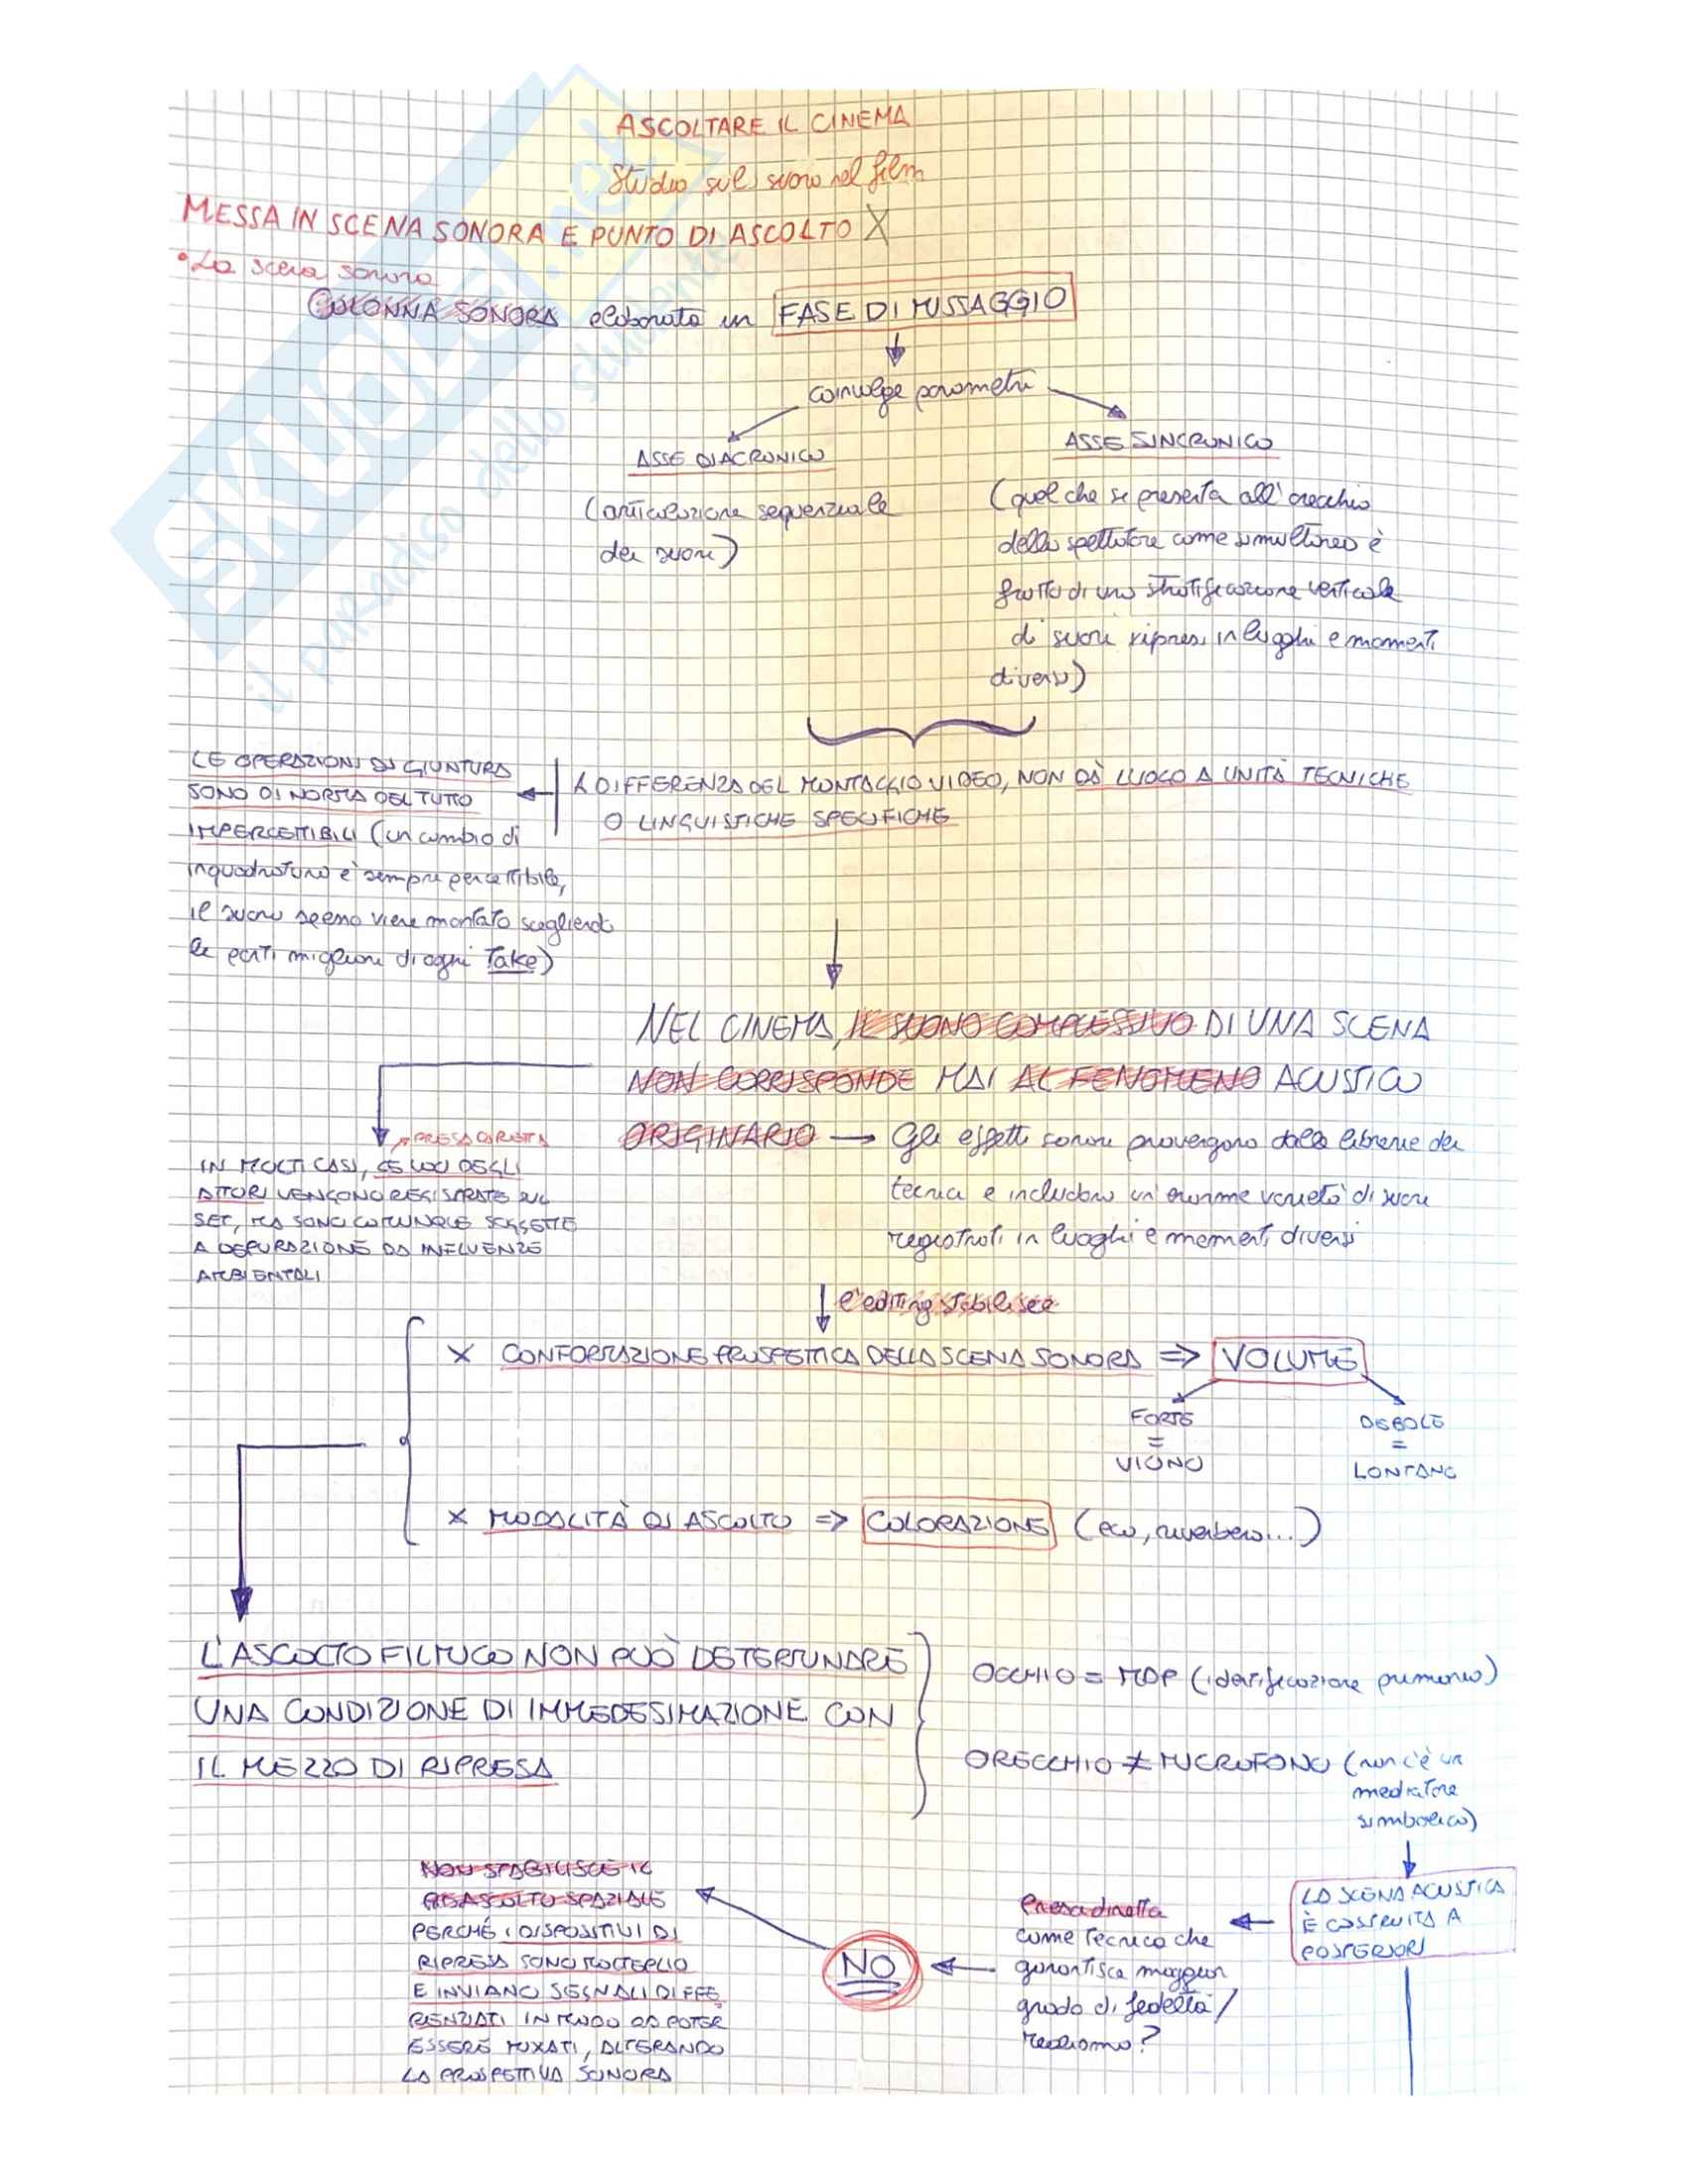 ASCOLTARE IL CINEMA
Studio sul suono nel film
MESSA IN SCENA SONORA E PUNTO DI ASCOLTO X
• La scena sonora
COLONNA SONORA elaborata in FASE DI MISSAGGIO
coinvolge parametri
ASSE DIACRONICO
(articolazione sequenziale
dei suoni)
ASSE SINCRONICO
(quel che si presenta all'orecchio
dello spettatore come simultaneo è
frutto di una stratificazione verticale
di suoni ripresi in luoghi e momenti
diversi)
A DIFFERENZA DEL MONTAGGIO VIDEO, NON DÀ LUOGO A UNITÀ TECNICHE
O LINGUISTICHE SPECIFICHE
LE OPERAZIONI DI GIUNTURA
SONO DI NORMA DEL TUTTO
IMPERCETTIBILI (un cambio di
inquadratura è sempre percettibile,
il suono viene montato scegliendo
le parti migliori di ogni Take)
NEL CINEMA, IL SUONO COMPLESSIVO DI UNA SCENA
NON CORRISPONDE MAI AL FENOMENO ACUSTICO
ORIGINARIO → Gli effetti sonori provengono dalle librerie dei
tecnici e includono un'enorme varietà di suoni
registrati in luoghi e momenti diversi
PRESA DIRETTA
IN MOLTI CASI, LE VOCI DEGLI
ATTORI VENGONO REGISTRATE SUL
SET, MA SONO COMUNQUE SOGGETTE
A DEPURAZIONE DA INFLUENZE
AMBIENTALI
l'editing stabilisce
x CONFORMAZIONE PROSPETTICA DELLA SCENA SONORA => VOLUME
FORTE
=
VICINO
DEBOLE
=
LONTANO
x MODALITÀ DI ASCOLTO => COLORAZIONE (eco, riverbero...)
L'ASCOLTO FILMICO NON PUÒ DETERMINARE
UNA CONDIZIONE DI IMMEDESIMAZIONE CON
IL MEZZO DI RIPRESA
OCCHIO = MDP (identificazione primaria)
ORECCHIO ≠ MICROFONO (non c'è un
mediatore
simbolico)
LA SCENA ACUSTICA
È COSTRUITA A
POSTERIORI
Presa diretta
come tecnica che
garantisca maggior
grado di fedeltà/
realismo?
NO
NON STABILISCE IL
ASCOLTO SPAZIALE
PERCHÉ I DISPOSITIVI DI
RIPRESA SONO MOLTEPLICI
E INVIANO SEGNALI DIFFE
RENZIATI IN MODO DA POTER
ESSERE MIXATI, ALTERANDO
LA PROSPETTIVA SONORA
SKUOLA.net
il paradiso dello studente